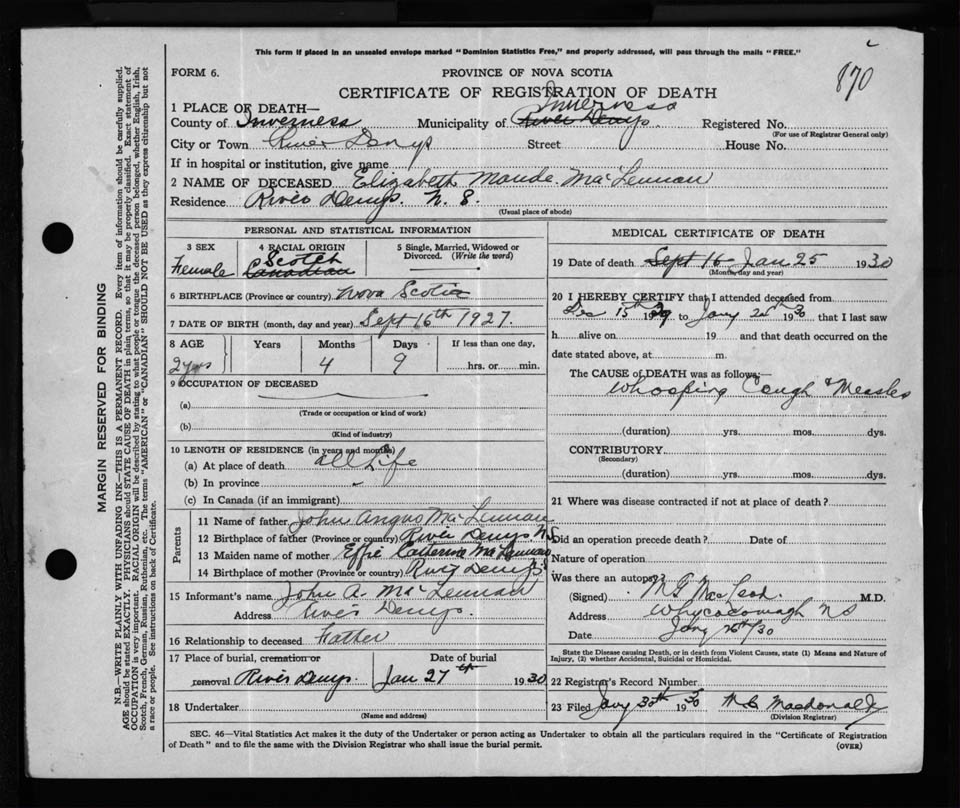 This form if placed in an unsealed envelope marked "Dominion Statistics Free," and properly addressed, will pass through the mails "FREE."
870
FORM 6.
PROVINCE OF NOVA SCOTIA
CERTIFICATE OF REGISTRATION OF DEATH
1 PLACE OF DEATH—
Inverness
County of Inverness Municipality of River Denys. Registered No.
(For use of Registrar General only)
City or Town River Denys Street House No.
If in hospital or institution, give name
2 NAME OF DECEASED Elizabeth Maude McLennan
Residence River Denys. N. S.
(Usual place of abode)
PERSONAL AND STATISTICAL INFORMATION
3 SEX 4 RACIAL ORIGIN 5 Single, Married, Widowed or Divorced. (Write the word)
Scotch
Female Canadian
6 BIRTHPLACE (Province or country) Nova Scotia
7 DATE OF BIRTH (month, day and year) Sept 16th 1927.
8 AGE Years Months Days If less than one day,
2 yrs 4 9 hrs. or min.
9 OCCUPATION OF DECEASED
(a)
(Trade or occupation or kind of work)
(b)
(Kind of industry)
10 LENGTH OF RESIDENCE (in years and months)
(a) At place of death all Life
(b) In province
(c) In Canada (if an immigrant)
Parents
11 Name of father John Angus McLennan
12 Birthplace of father (Province or country) River Denys N
13 Maiden name of mother Effie Catherine McLennan
14 Birthplace of mother (Province or country) River Denys
15 Informant's name John A. McLennan
Address River Denys.
16 Relationship to deceased Father
17 Place of burial, cremation or Date of burial
removal River Denys. Jan 27th 1930
18 Undertaker
(Name and address)
MEDICAL CERTIFICATE OF DEATH
19 Date of death Sept 16 Jan 25 1930
(Month, day and year)
20 I HEREBY CERTIFY that I attended deceased from
Dec 15th 1929 to Jany 1930 that I last saw
h alive on 19 and that death occurred on the
date stated above, at m.
The CAUSE of DEATH was as follows:—
Whooping Cough & Measles
(duration) yrs. mos. dys.
CONTRIBUTORY
(Secondary)
(duration) yrs. mos. dys.
21 Where was disease contracted if not at place of death?
Did an operation precede death? Date of
Nature of operation
Was there an autopsy?
(Signed) MacLeod M.D.
Address Whycocomagh NS
Date Jany 26th/30
State the Disease causing Death, or in death from Violent Causes, state (1) Means and Nature of Injury, (2) whether Accidental, Suicidal or Homicidal.
22 Registrar's Record Number
23 Filed Jany 30th 1930 Macdonald
(Division Registrar)
SEC. 46—Vital Statistics Act makes it the duty of the Undertaker or person acting as Undertaker to obtain all the particulars required in the "Certificate of Registration
of Death" and to file the same with the Division Registrar who shall issue the burial permit.
(OVER)
MARGIN RESERVED FOR BINDING
N.B.—WRITE PLAINLY WITH UNFADING INK—THIS IS A PERMANENT RECORD. Every item of information should be carefully supplied.
AGE should be stated EXACTLY. PHYSICIANS should STATE CAUSE OF DEATH in plain terms, so that it may be properly classified. Exact statement of
OCCUPATION is very important. RACIAL ORIGIN will be described by stating to what people or tongue the deceased person belonged, whether English, Irish,
Scotch, French, German, Russian, Ruthenian, etc. The terms "AMERICAN" or "CANADIAN" SHOULD NOT BE USED as they express citizenship but not
a race or people. See instructions on back of Certificate.